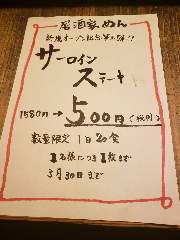 居酒家めん
新規オープン記念第2弾!?
サーロイン
ステーキ
1580円→500円(税別)
数量限定 1日20食
1名様につき1枚まで
3月30日まで